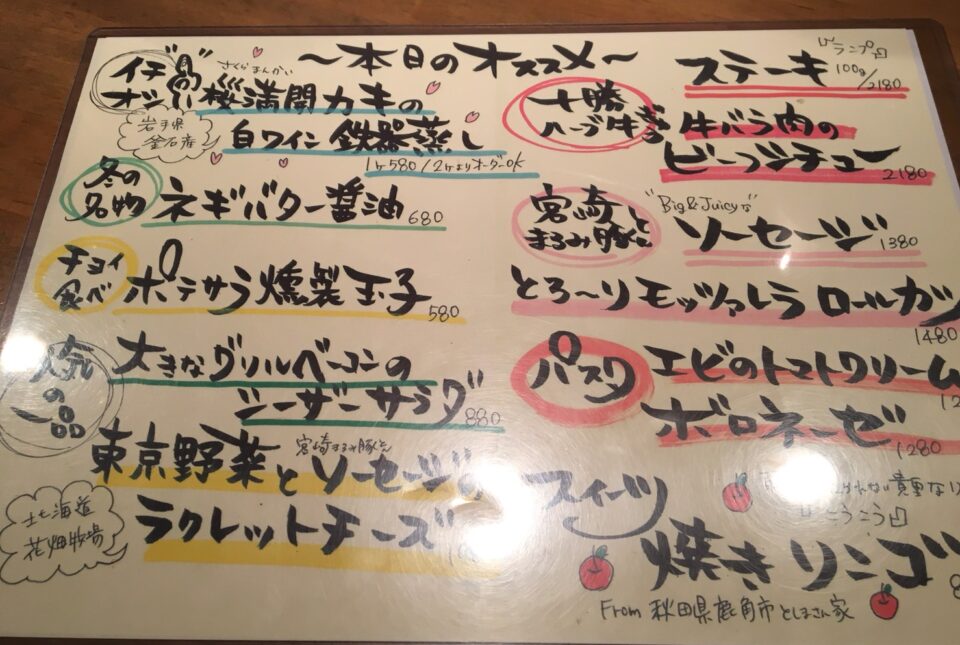 〜本日のオススメ〜
イチオシ
さくらまんかい
桜満開カキの
岩手県
釜石産
白ワイン 鉄器蒸し
1ケ580/2ケよりオーダーOK
冬の
名物
ネギバター醤油 680
チョイ
食べ
ポテサラ燻製玉子 580
人気
の
一品
大きなグリルベーコンの
シーザーサラダ 880
東京野菜と
宮崎まるみ豚
ソーセージの
北海道
花畑牧場
ラクレットチーズ
十勝
ハーブ牛
「ランプ」
ステーキ 100g/2180
牛バラ肉の
ビーフシチュー 2180
宮崎
まるみ豚
"Big&Juicyな"
ソーセージ 1380
とろ〜りモッツァレラ ロールカツ
1480
パスタ
エビのトマトクリーム
ボロネーゼ 1280
スイーツ
貴重な
「こうこう」
焼きリンゴ
From 秋田県鹿角市としまさん家